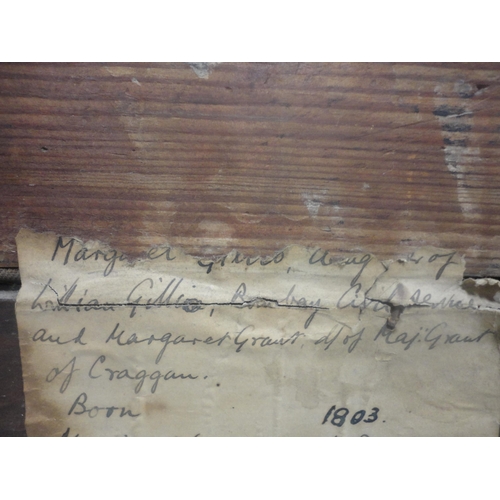 Margaret Gillis, daughter of
William Gillis, Bombay Civil Service
and Margaret Grant, dt of Maj: Grant
of Craggan.
Born 1803.